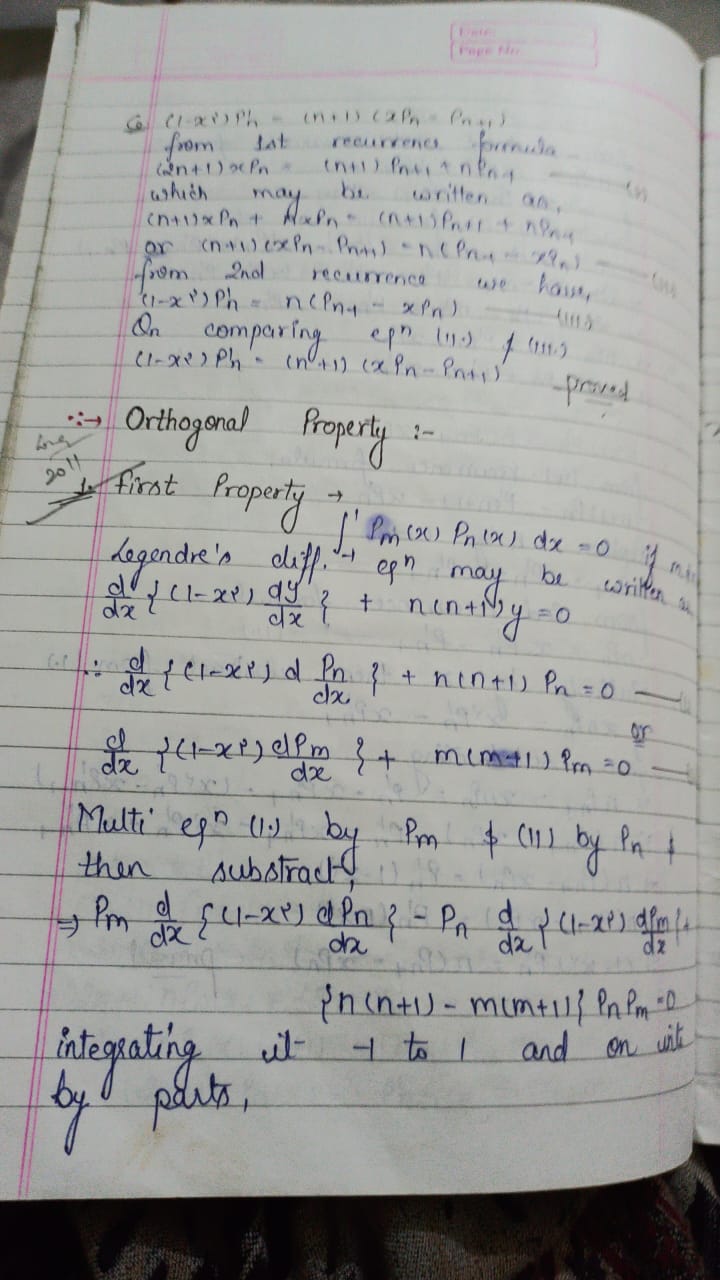 Date
Page No.
(1-x²)Pń = (n+1) (xPn - Pn+1)
from 1st recurrence formula
(2n+1)xPn = (n+1) Pn+1 + nPn-1
which may be written as,
(n+1)xPn + nxPn = (n+1)Pn+1 + nPn-1
or (n+1)(xPn - Pn+1) = n(Pn-1 - xPn)
from 2nd recurrence we have,
(1-x²)Pń = n(Pn-1 - xPn) (III)
On comparing eqn (II.) & (III.)
(1-x²)Pń = (n+1) (xPn - Pn+1)
proved
Orthogonal Property :-
2011
1. first Property →
∫₋₁¹ Pm(x) Pn(x) dx = 0 if
Legendre's diff. eqn may be written as
d/dx {(1-x²) dy/dx} + n(n+1)y = 0
∴ d/dx {(1-x²) d Pn/dx} + n(n+1) Pn = 0
or
d/dx {(1-x²) dPm/dx} + m(m+1) Pm = 0
Multi eqn (I.) by Pm & (II) by Pn &
then substract,
⇒ Pm d/dx {(1-x²) dPn/dx} - Pn d/dx {(1-x²) dPm/dx} +
{n(n+1) - m(m+1)} PnPm = 0
integrating it -1 to 1 and on
by parts,